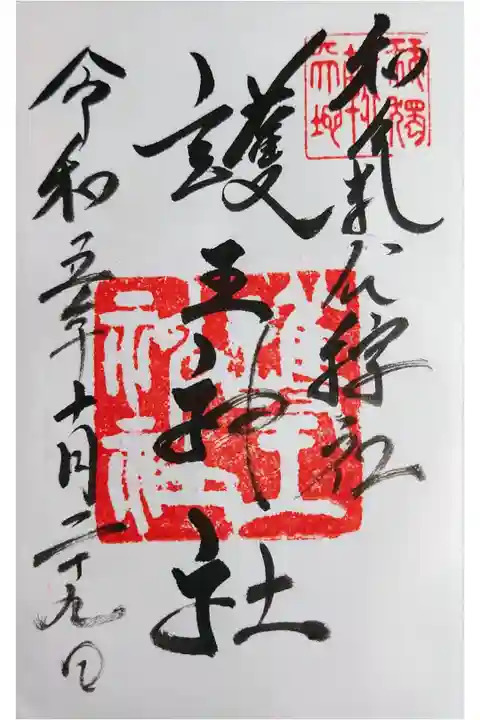 和氣公綜社
護王神社
令和五年十月二十九日
護王神社